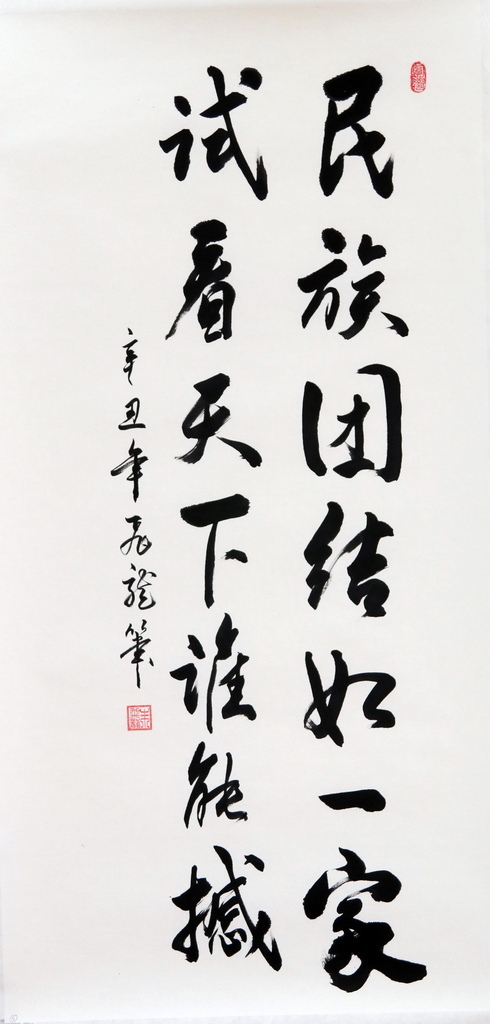 民族团结如一家
试看天下谁能撼
辛丑年飞龙笔